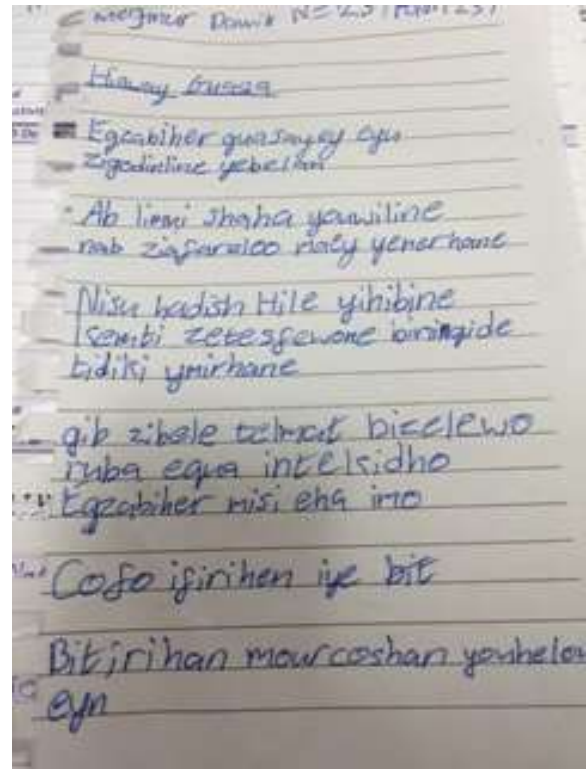 mezmur Dawit N= 23 
Hiway
Egzabiher guasayey eyu
zigodinline yebellan
Ab liemi shaha yauwiline
nab ziafaraloo maey yenerhane
Nisu hadish Hile yihibine
Semti zetesfewone biringide
tidiki ymirhane
gib zibele tselmat bicelewo
ruba equa intelsidho
Egzabiher misi eha imo
Cofo ifirihen iye bit
Bitirihan mourcoshan younhelou
eyn